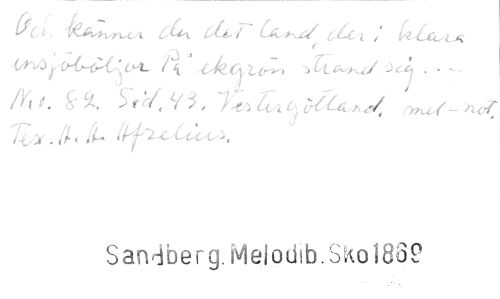 Och känner du det land, der i klara
insjöböljor På ekgrön strand sig...
Nro. 82. Sid. 43. Vestergötland. mel-not.
Tex. A. A. Afzelius.
Sandberg. Melodib. Sko1869